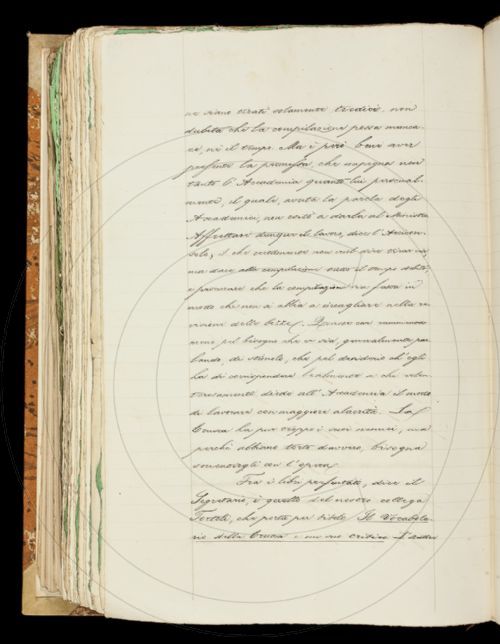 ne siano tirati solamente tredici, non
dubita che la compilazione possa manca-
re, nè il tempo. Ma è però bene aver
presente la promessa, che impegna non
tanto l'Accademia quanto lui personal-
mente, il quale, avuta la parola degli
Accademici, non esitò a darla al Ministro.
Affrettare dunque il lavoro, dice l'Arcicon-
solo, il che certamente non vuol dire
ma dare alla compilazione tutto il tempo debito
e procurare che la compilazione sia fatta in
modo che non si abbia a incagliare nella re-
visione delle bozze.
pel bisogno che vi sia, generalmente par-
lando, di stimolo, che pel desiderio ch'egli
ha di corrispondere lealmente a chi volon-
tariamente diede all'Accademia il modo
di lavorare con maggiore alacrità. La
Crusca ha pur troppo i suoi nemici, ma
perchè abbiano torto davvero, bisogna
con l'opera.
Fra i libri presentati, dice il
Segretario, è quello del nostro collega
Tortoli, che porta per titolo Il Vocabola-
rio della Crusca e un suo critico